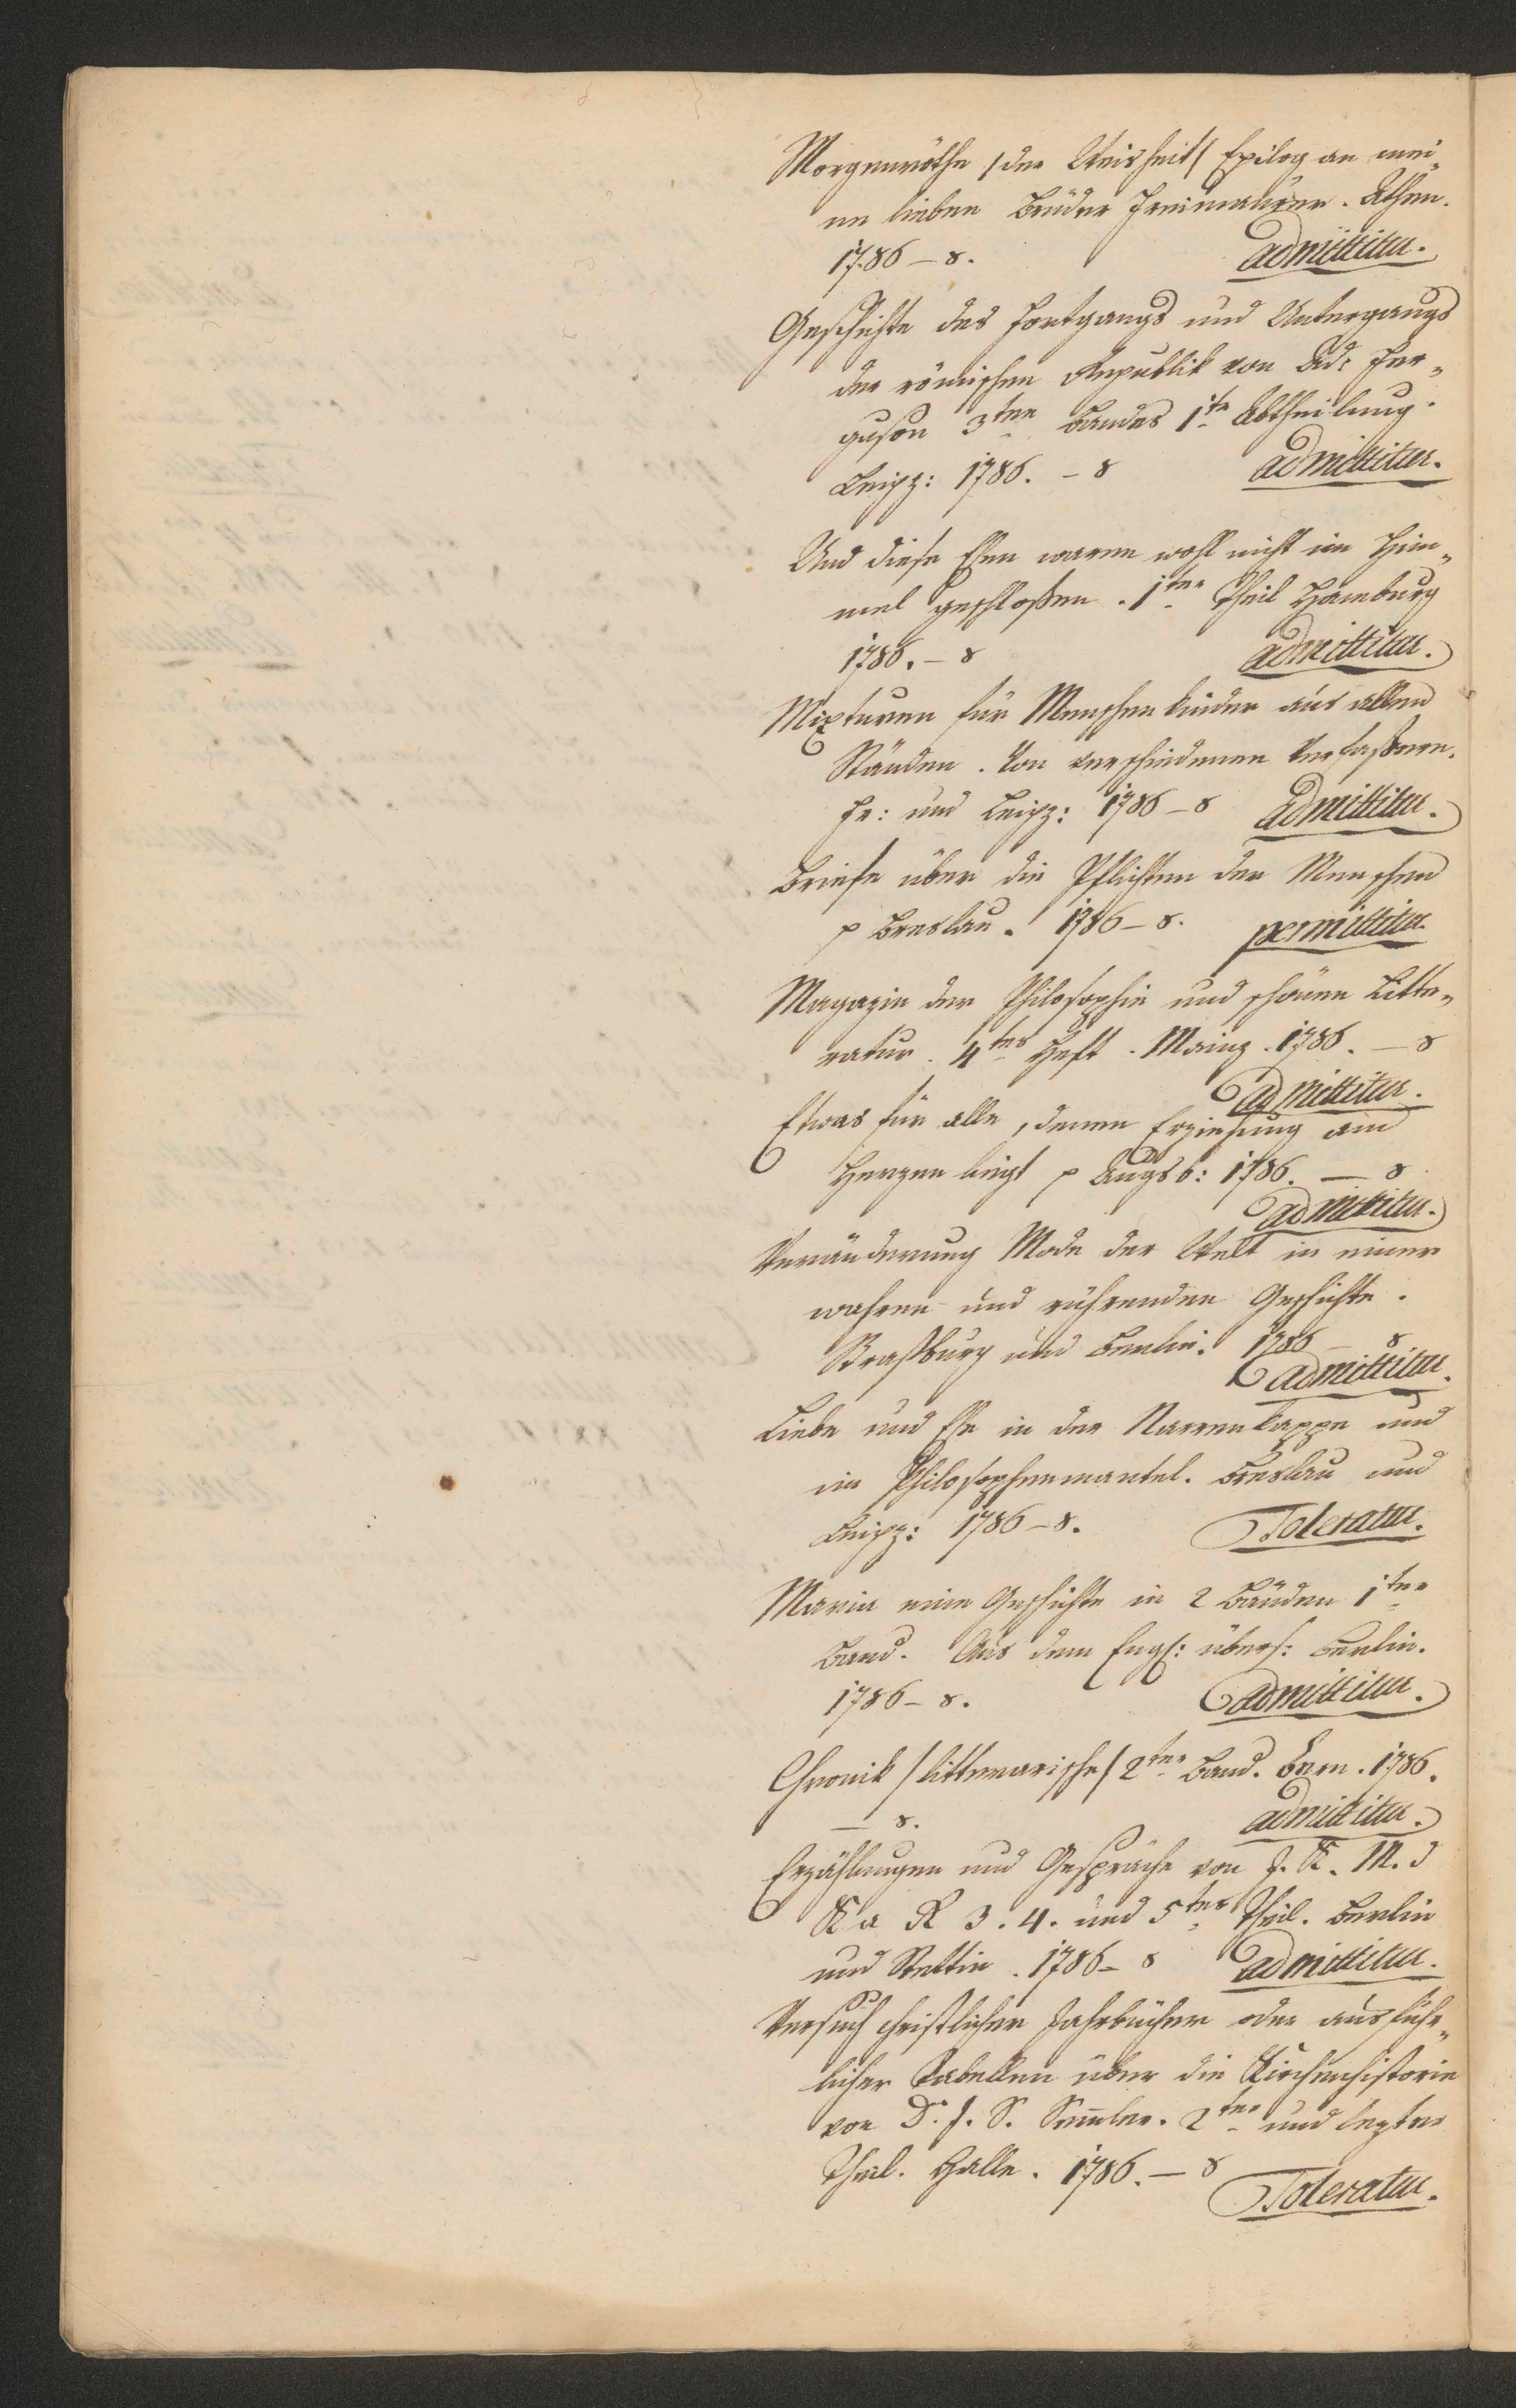 Morgenröthe /der Weisheit/ Epilog an mei¬
ne lieben Brüder Freimaurer. Athen.
1786 – 8. admittitur.
Geschichte des Fortgangs und Untergangs
der römischen Republik von Ad: Fer¬
guson 3ten Bandes 1te Abtheilung.
Leipz: 1786. – 8 admittitur.
Und diese Ehen waren wohl nicht im Him¬
mel geschloßen. 1ter Theil Hamburg
1786. – 8 admittitur.
Mixturen für Menschenkinder aus allen
Ständen. Von verschiedenen Verfaßern.
Fr: und Leipz: 1786 – 8 admittitur.
Briefe über die Pflichten der Menschen
p Breslau. 1786 – 8. permittitur
Magazin der Philosophie und schönen Litte¬
ratur. 4tes Heft. Mainz. 1786. – 8
admittitur.
Etwas für alle, denen Erziehung am
Herzen liegt p Augsb: 1786. – 8
admittitur.
Veränderung Mode der Welt in einer
wahren und rührenden Geschichte.
Straßburg und Berlin. 1786 – 8
admittitur.
Liebe und Ehe in der Narrenkappe und
im Philosophenmantel. Breslau und
Leipz: 1786 – 8. Toleratur.
Maria eine Geschichte in 2 Bänden 1ter
Band. Aus dem Engl: übers: Berlin.
1786 – 8. admittitur.
Chronik /litterarische/ 2ter Band. Bern. 1786.
– 8. admittitur.
Erzählungen und Gespräche von J. K. M. J
K a R 3. 4. und 5ter Theil. Berlin
und Stettin. 1786 – 8 admittitur.
Versuch christlicher Jahrbücher oder ausführ¬
licher Tabellen über die Kirchenhistorie
von D. J. S. Semler. 2ter und lezter
Theil. Halle. 1786. – 8
Toleratur.